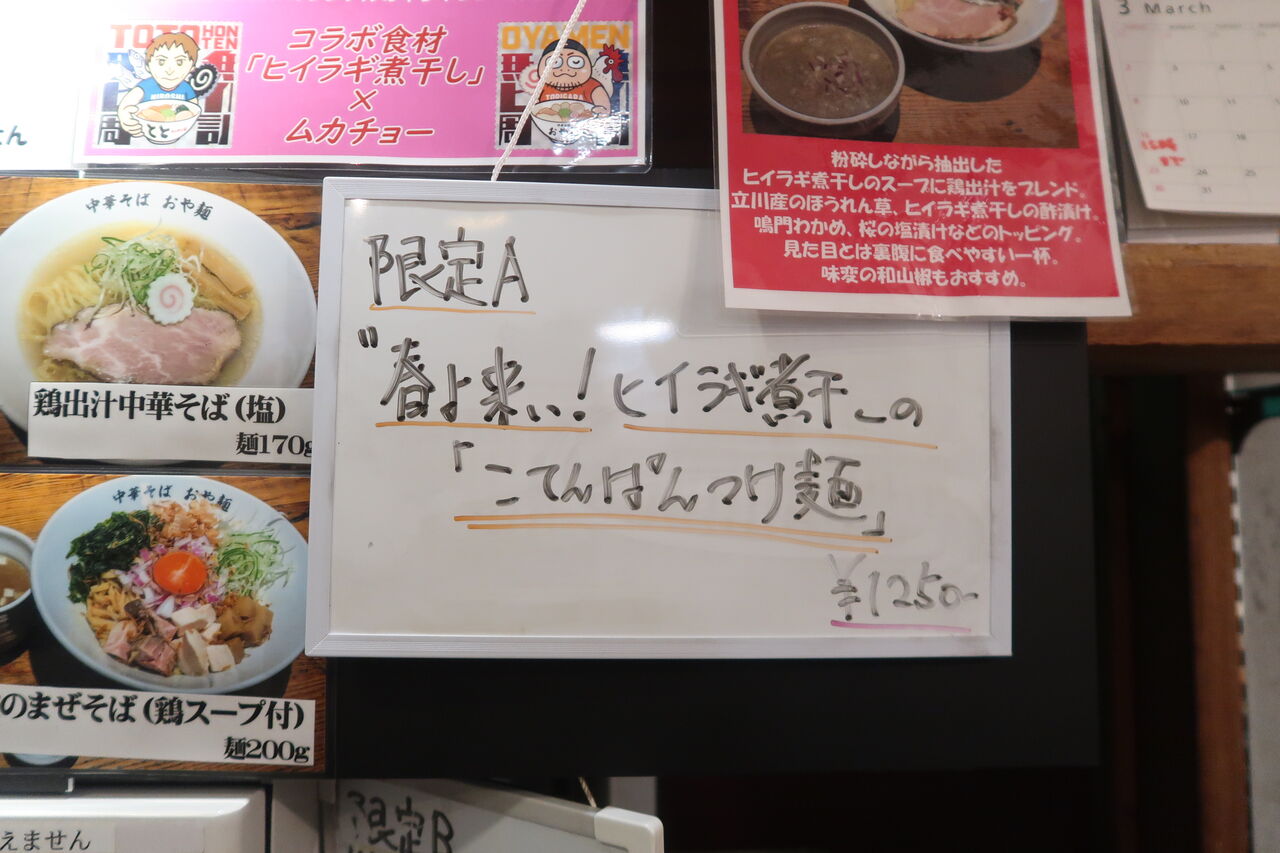 TOTO HON TEN
HIROSHI
とと
コラボ食材
「ヒイラギ煮干し」
×
ムカチョー
OYAMEN
おやめ
せん
中華そば おや麺
鶏出汁中華そば(塩)
麺170g
中華そば おや麺
のまぜそば(鶏スープ付)
麺200g
えません
限定A
"春よ来い!ヒイラギ煮干しの
「こてんぱんつけ麺」
¥1250-
限定B
粉砕しながら抽出した
ヒイラギ煮干しのスープに鶏出汁をブレンド。
立川産のほうれん草、ヒイラギ煮干しの酢漬け、
鳴門わかめ、桜の塩漬けなどのトッピング。
見た目とは裏腹に食べやすい一杯。
味変の和山椒もおすすめ。
3 March
9 10 11
17 18
24 25
31